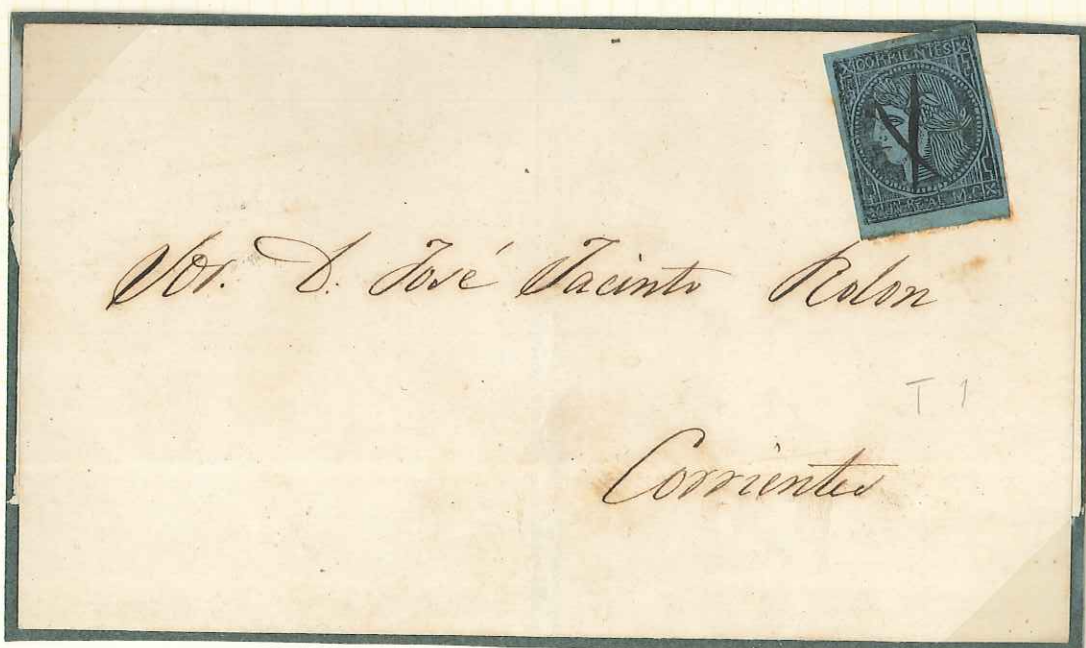 CORRIENTES
UN REAL M.C.
Sor. D. José Jacinto Rolon
T 1
Corrientes